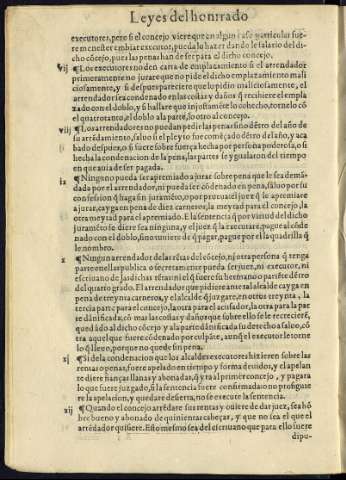 Leyes del honrado
executores, pero si el concejo viere que en algun caso particular fue-
re menester cambiar executor, pueda lo hazer dando le salario del di-
cho cōcejo, pues las penas han de ser para el dicho concejo.
vij ¶ Los executores no den carta de emplazamiento si el arrendador
primeramente no jurare que no pide el dicho emplazamiento mali
ciosamente, y si despues pareciere que lo pidio maliciosamente, el
arrendador sea condenado en las costas y daños q̄ recibiere el empla
zado con el doblo, y si hallare que injustamēte lo cohecho, torne lo cō
el quatro tanto, el doblo a la parte, lo otro al concejo.
viij ¶ Los arrendadores no puedan pedir las penas sino dētro del año de
su arrēdamiento, saluo si el pleyto fue comēçado dētro del año, y aca
bado despues, o si fuere sobre fuerça hecha por persona poderosa, o si
hecha la condenacion de la pena, las partes se ygualaron del tiempo
en que auia de ser pagada.
ix ¶ Ninguno pueda ser apremiado a jurar sobre pena que le sea demā-
dada por el arrendador, ni pueda ser cōdenado en pena, saluo por su
confession, q̄ haga sin juramēto, o por prouāça: el juez q̄ se apremiare
a jurar, cayga en pena de diez carneros, la meytad para el concejo, la
otra meytad para el apremiado. E la sentencia q̄ por virtud del dicho
juramēto se diere sea ninguna, y el juez q̄ la executare, pague al cōde
nado con el doblo, si no tuuiere de q̄ pagar, pague por el la quadrilla q̄
le nombro.
x ¶ Ningun arrendador de las rētas del concejo, ni otra persona q̄ tenga
parte en ellas publica o secretamente pueda ser juez, ni executor, ni
escriuano de las dichas rētas: ni el q̄ fuere su hermano o pariēte dētro
del quarto grado. El arrendador que pidiere ante tal alcalde cayga en
pena de treynta carneros, y el alcalde q̄ juzgare, en otros treynta, la
tercia parte para el concejo, la otra para el acusador, la otra para la par
te dānificada, cō mas las costas y daños que sobre ello se le recreciere,
quedādo al dicho cōcejo y a la parte dānificada su derecho a saluo, cō
tra aquel que fuere cōdenado por culpāte, aunq̄ el executor le torne
lo q̄ lleuo, porque no quede sin pena.
xj ¶ Si de la condenacion que los alcaldes executores hizieren sobre las
rentas o penas, fuere apelado en tiempo y forma deuidos, y el apelan
te diere fianças llanas y abonadas, q̄ yra al primer concejo, y pagara
lo que fuere juzgado, si la sentencia fuere confirmada o no prosiguie
re la apelacion, y quedare desierta, no se execute la sentencia.
xij ¶ Quando el concejo arrēdare sus rentas y ouiere de dar juez, sea hō
bre bueno y abonado de quinientas cabeças, y que no sea el que el
arrēdador quisiere. Esto mesmo sea del escriuano que para ello fuere
dipu-